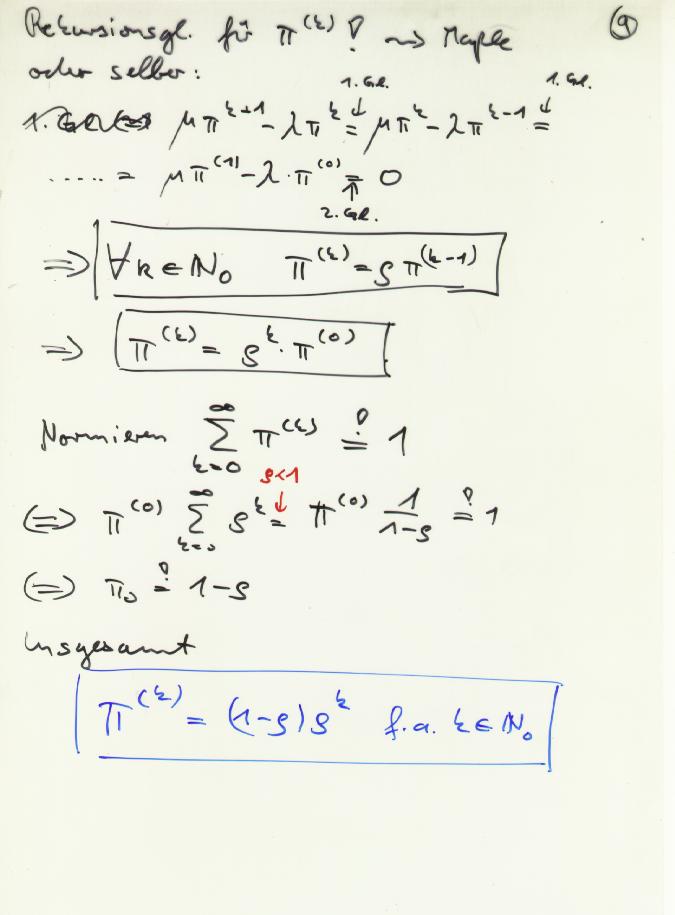 Rekursionsgl. für π^(k) ! ⇝ Maple
⑨
oder selber:
1. Gl. 1. Gl.
1. Gl. ⇔ μπ^{k+1} - λπ^k = μπ^k - λπ^{k-1} =
..... = μπ^(1) - λ·π^(0) = 0
2. Gl.
⇒ ∀k∈ℕ₀ π^(k) = ϱπ^(k-1)
⇒ π^(k) = ϱ^k · π^(0)
Normieren ∑_{k=0}^∞ π^(k) =! 1
ϱ<1
⇔ π^(0) ∑_{k=0}^∞ ϱ^k = π^(0) 1/(1-ϱ) =! 1
⇔ π₀ =! 1-ϱ
Insgesamt
π^(k) = (1-ϱ)ϱ^k f.a. k∈ℕ₀